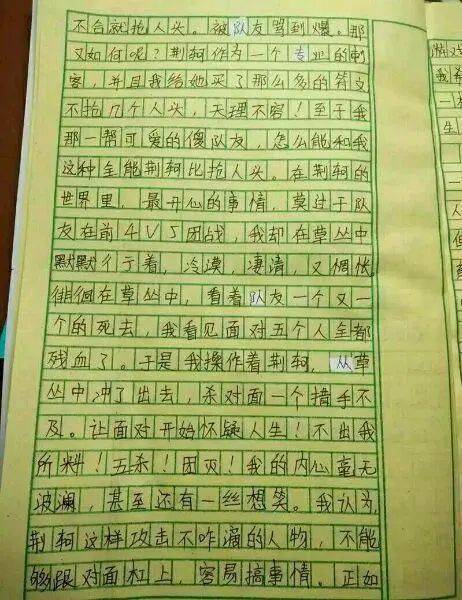 不合就抢人头。被队友骂到爆。那
又如何呢？荆轲作为一个专业的刺
客，并且我给她买了那么多的符文
不抢几个人头，天理不容！至于我
那一帮可爱的傻队友，怎么能和我
这种全能荆轲比抢人头。在荆轲的
世界里，最开心的事情，莫过于队
友在前4V5团战，我却在草丛中
默默彳亍着，冷漠，凄清，又惆怅
徘徊在草丛中，看着队友一个又一
个的死去，我看见面对五个人全都
残血了。于是我操作着荆轲，从草
丛中冲了出去，杀对面一个措手不
及。让面对开始怀疑人生！不出我
所料！五杀！团灭！我的内心毫无
波澜，甚至还有一丝想笑。我认为，
荆轲这样攻击不咋滴的人物，不能
够跟对面杠上，容易搞事情。正如
情
我
一
生